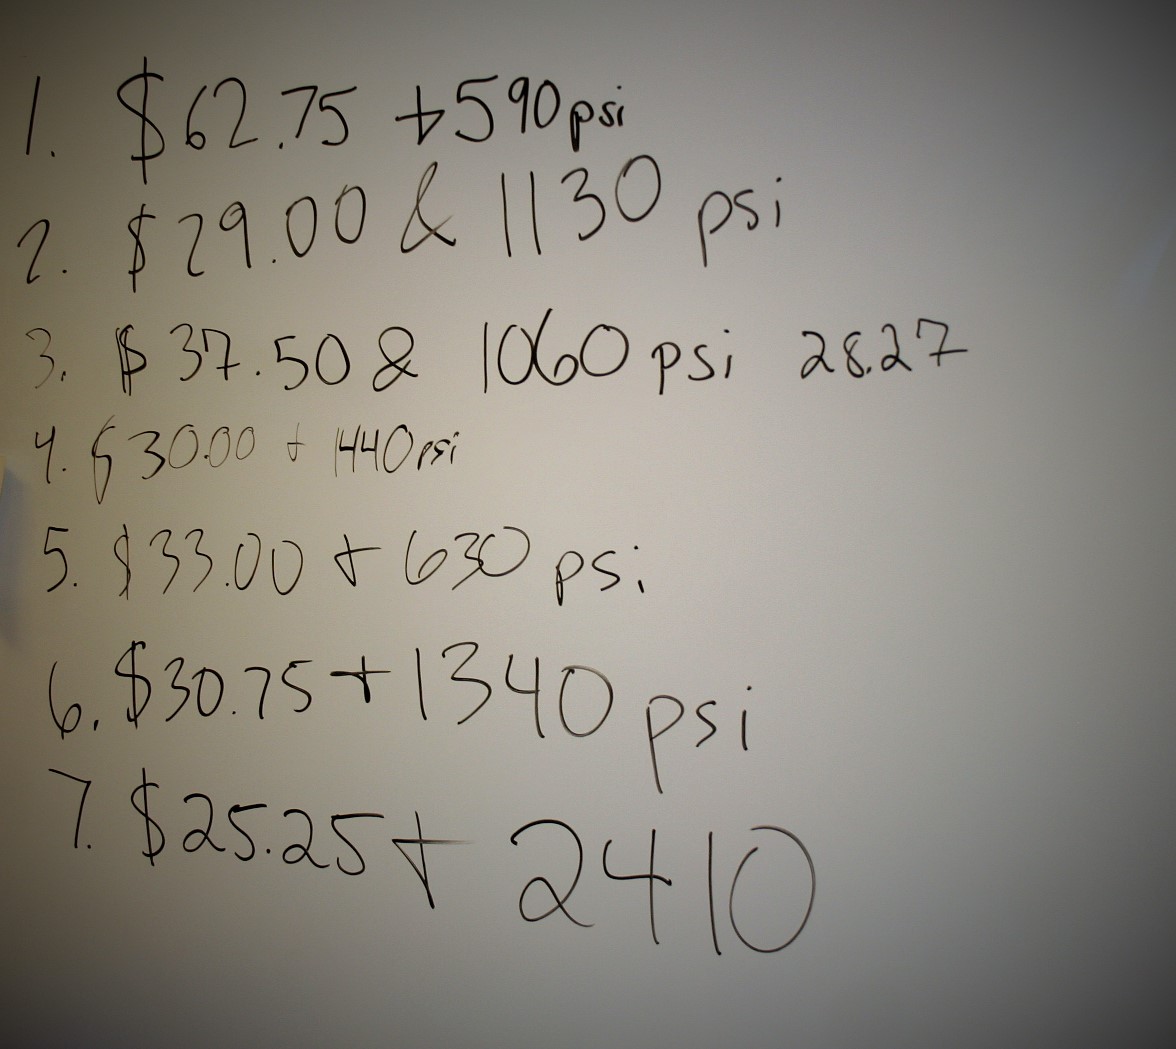 1. $62.75 + 590 psi
2. $29.00 & 1130 psi
3. $37.50 & 1060 psi 28.27
4. $30.00 + 1440 psi
5. $33.00 + 630 psi
6. $30.75 + 1340 psi
7. $25.25 + 2410